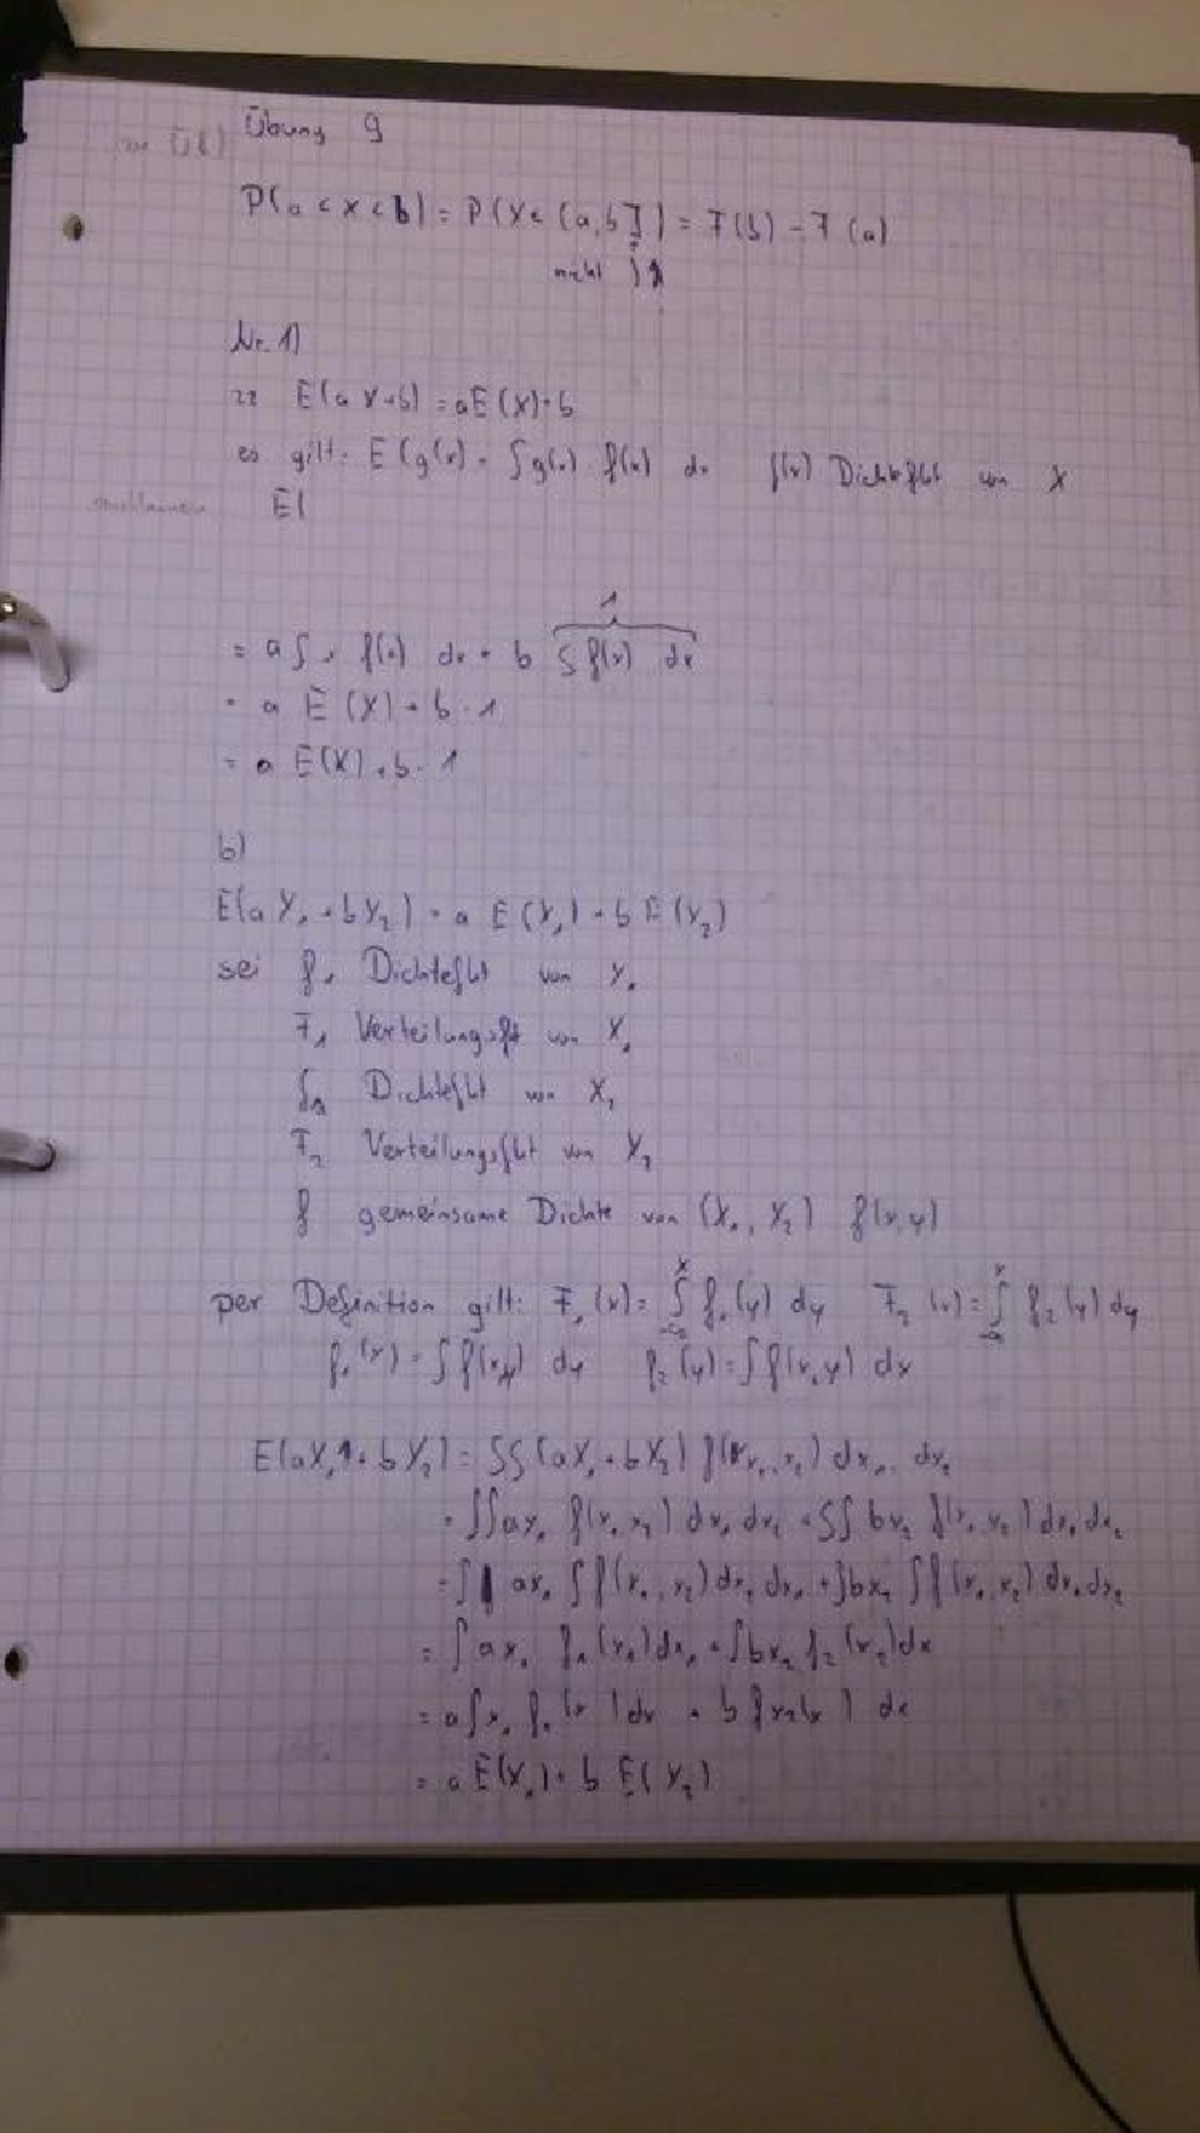 Übung 9
P(a < X < b) = P(X ∈ (a,b]) = F(b) - F(a)
nicht )
Nr. 1)
zz E(aX+b) = aE(X)+b
es gilt: E(g(x) = ∫g(x) f(x) dx f(x) Dichtefkt von X
E(
= a ∫x f(x) dx + b ∫f(x) dx
1
= a E(X) + b · 1
= a E(X) + b · 1
b)
E(aX₁ + bX₂) = a E(X₁) + b E(X₂)
sei f₁ Dichtefkt von X₁
F₁ Verteilungsfkt von X₁
f₂ Dichtefkt von X₂
F₂ Verteilungsfkt von X₂
f gemeinsame Dichte von (X₁, X₂) f(x,y)
per Definition gilt: F₁(x) = ∫ₓ₋∞ f₁(y) dy F₂(x) = ∫ₓ₋∞ f₂(y) dy
f₁(x) = ∫f(x,y) dy f₂(y) = ∫f(x,y) dx
E(aX₁ + bX₂) = ∫∫(aX₁ + bX₂) f(x₁,x₂) dx₁ dx₂
= ∫∫ax₁ f(x₁ x₂) dx₁ dx₂ + ∫∫ bx₂ f(x₁ x₂) dx₁ dx₂
= ∫ ax₁ ∫f(x₁,x₂) dx₂ dx₁ + ∫bx₂ ∫f(x₁,x₂) dx₁ dx₂
= ∫ax₁ f₁(x₁)dx₁ + ∫bx₂ f₂(x₂)dx
= a∫x₁ f₁(x )dx + b ∫x₂(x ) dx
= a E(X₁) + b E(X₂)